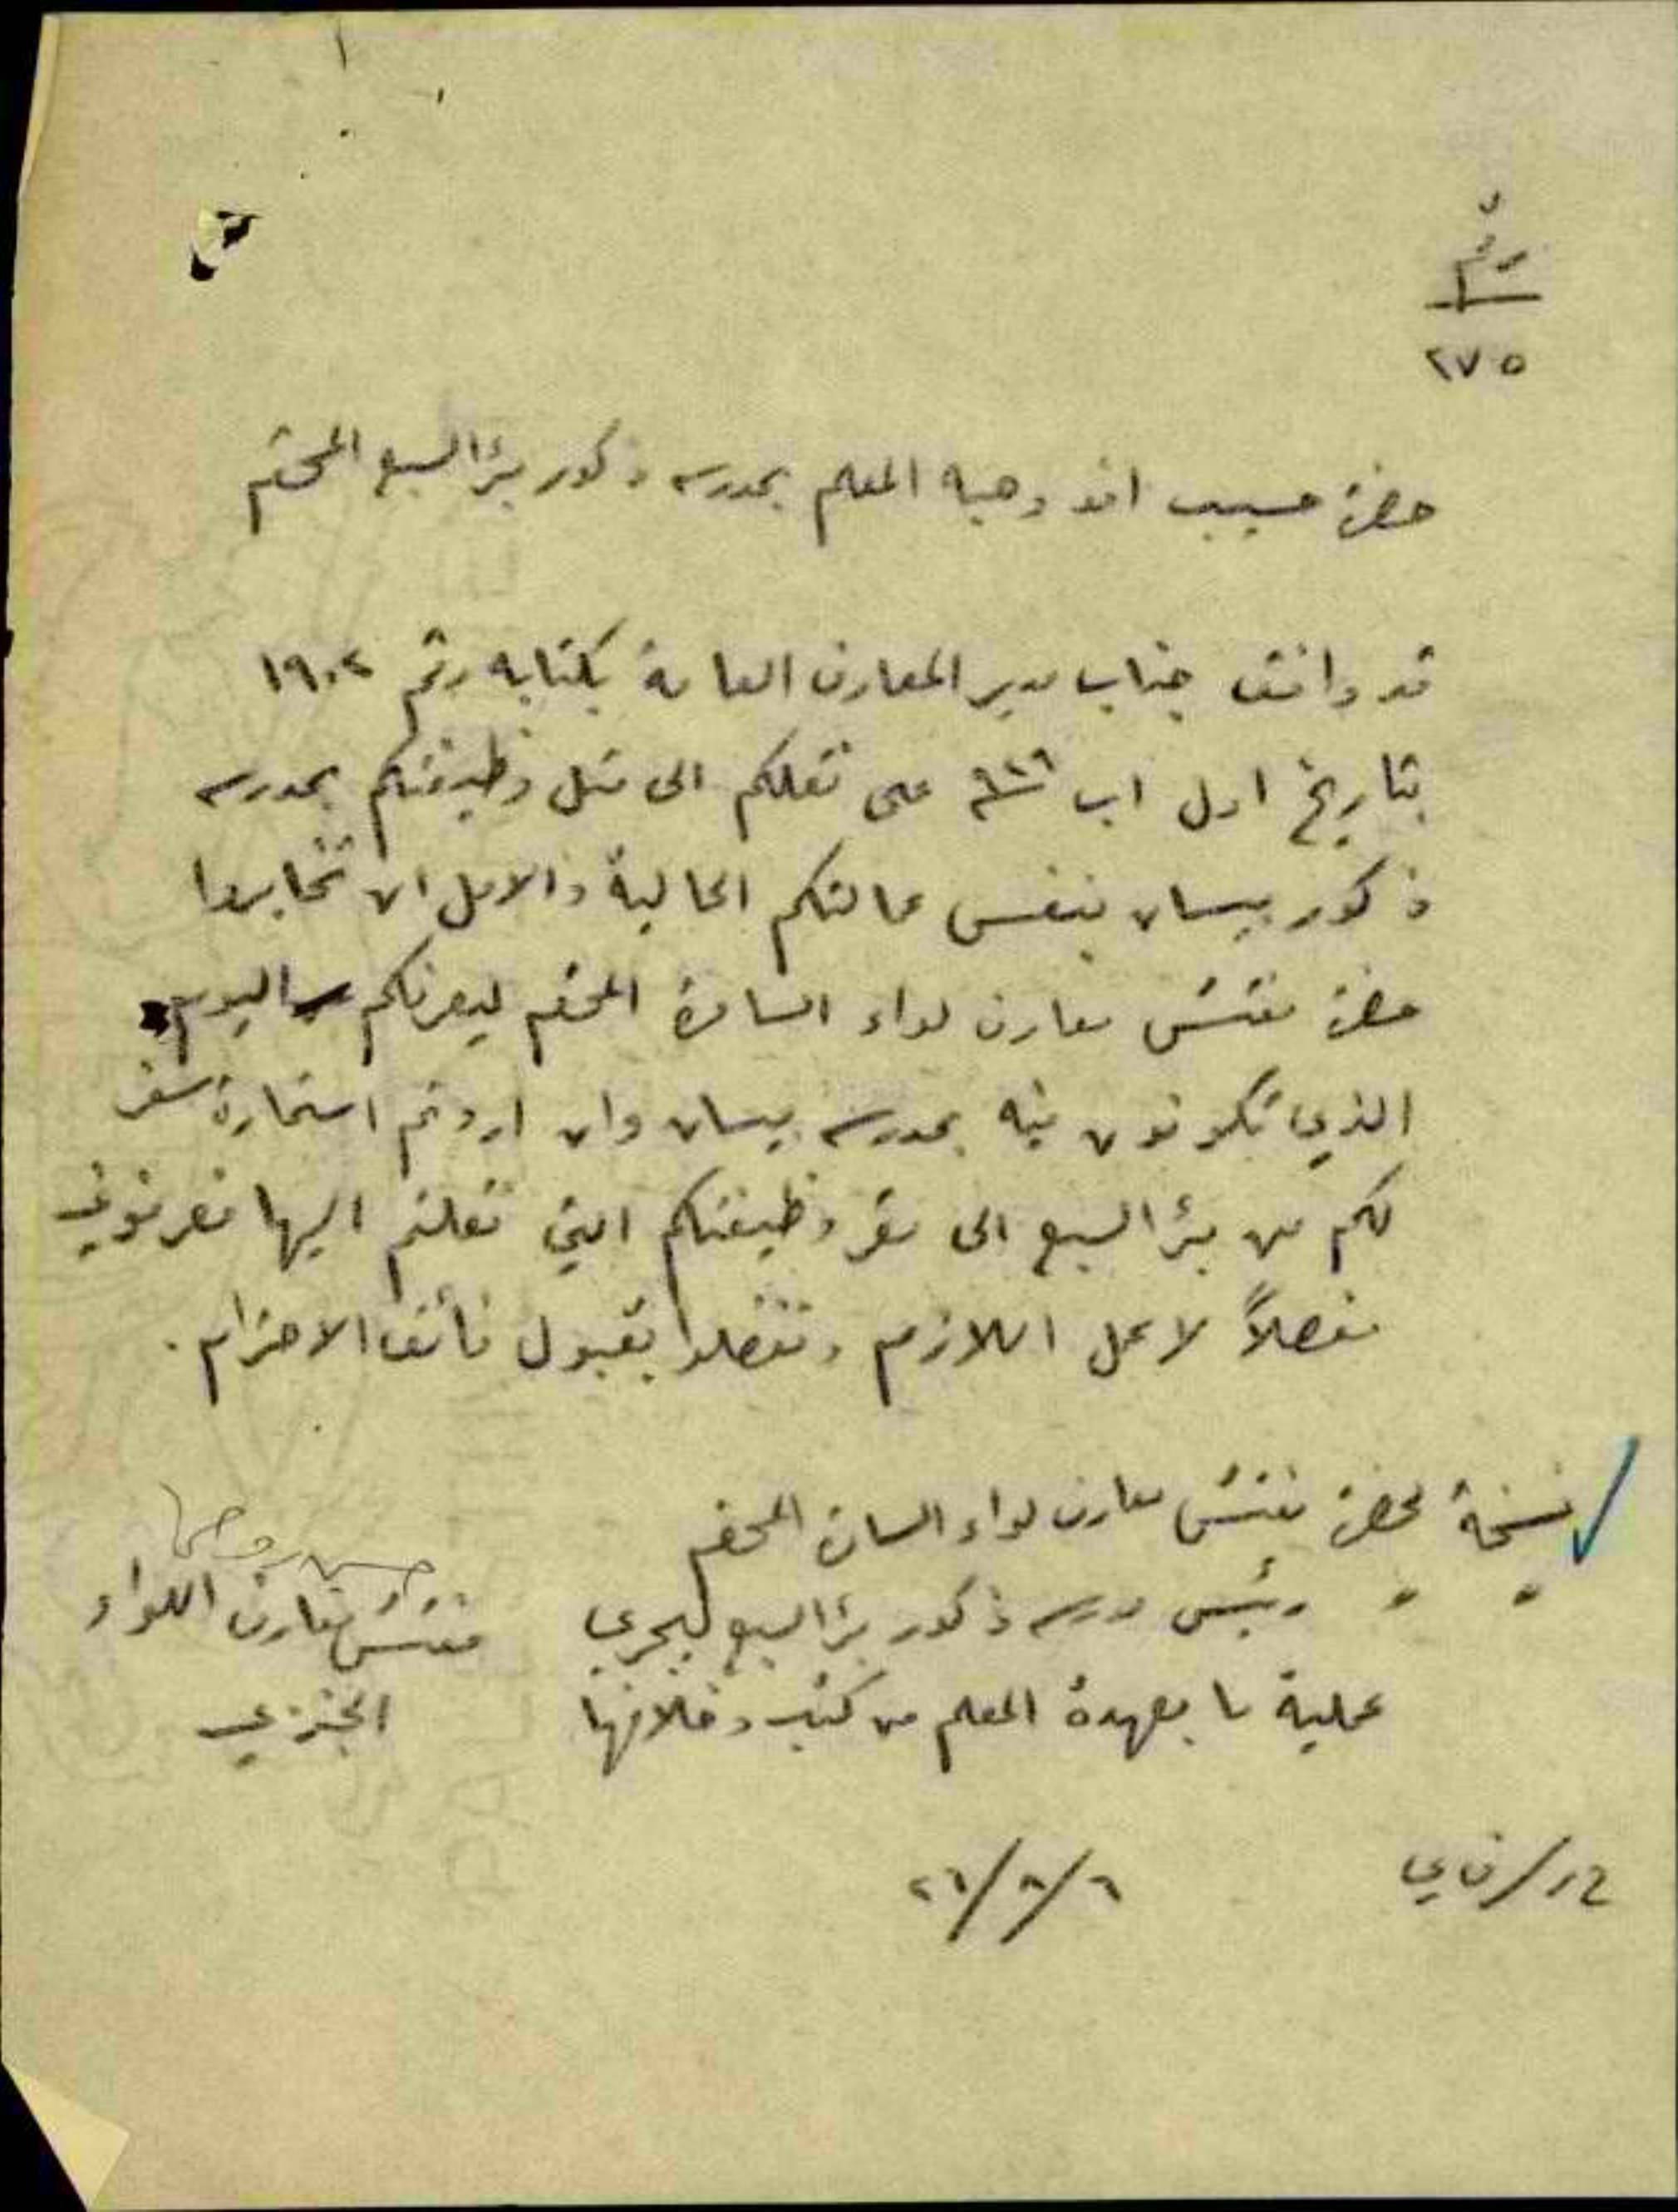 رقم
٢٧٥
حضرة حبيب افند وهبه المعلم بمدرسة ذكور بئر السبع المحترم
قد وافق جناب مدير المعارف العامة بكتابه رقم ١٩٠٢
بتاريخ اول اب ٩٢٦ على نقلكم الى مثل وظيفتكم بمدرسة
ذكور بيسان بنفس عمالتكم الحالية والامل ان تخابروا
حضرة مفتش معارف لواء السامرة المحترم ليعرفكم اليوم
الذي تكونون فيه بمدرسة بيسان وان اردتم استمارة سفر
لكم من بئر السبع الى مقر وظيفتكم التي نقلتم اليها فعرفوني
مفصلاً لاعمل اللازم وتفضلوا بقبول فائق الاحترام .
نسخة لحضرة مفتش معارف لواء السامرة المحترم
" " رئيس مدرسة ذكور بئر السبع ليجري
عملية ما بعهدة المعلم من كتب وخلافها
مفتش معارف اللواء
الجنوبي
٢٦/٨/٦